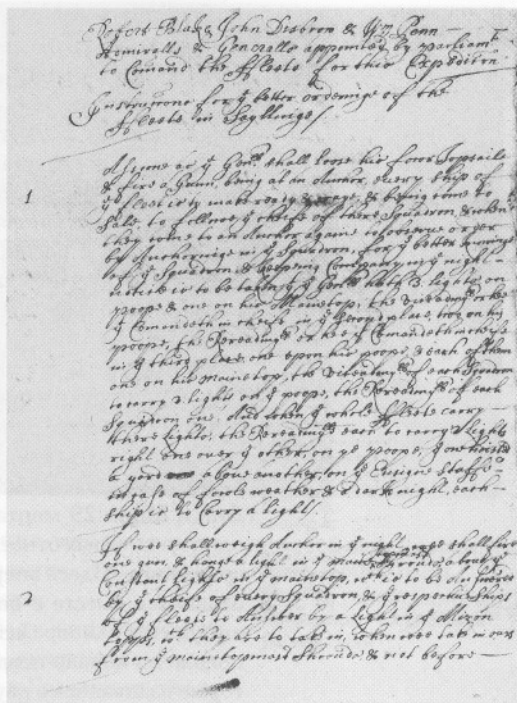 Robert Blake, John Desbrow & Wm Penn
Admiralls & Generalls appointed by parliamt
to Comand the ffleete for this Expedition
Instructions for ye better orderinge of the
ffleete in Saylinge/
1
As soone as ye Genll shall loose his foore Topsaile
& fire a Gunn, being at an Anchor, every ship of
ye fleet is to make ready & & being come to
Saile to follow ye cheife of there Squadron, & when
they come to an Anchor againe to observe order
by Anchoringe in ye Squadron, for ye better
of ye Squadron, & keeping Company in ye night
notice is to be taken, ye Genll hath 3 lights on
poope & one on his Maintop, the viceadmll or hee
yt Comandeth in cheife in ye second place, two on his
poope, the Rereadmll or hee yt Comandeth in cheife
in ye third place, one upon his poope, & each of them
one on his maintop, the viceadmll of each Squadron
to carry 2 lights on ye poope, the Rereadmll of each
Squadron one. And when ye whole ffleete carry
there lights, the Rereadmlls each to carry 2 lights
right one over ye other, on ye poope,
a yard above another, on ye Ensigne staffe
in case of foule weather & a darke night, each
ship is to Carry a light/
2
If wee shall weigh Anchor in ye night, wee shall fire
one gun, & hange a light in ye main topmast shrouds, above ye
Constant light in ye maintop, wch is to be Answered
by ye cheife of every Squadron, & ye respective ships
of ye fleete to Answer by a light in ye Mizon
topps, wch they are to take in, when wee take in ours
from ye maintopmast Shrouds, & not before